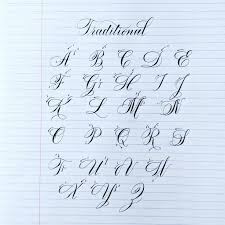 Traditional
A B C D E
F G H I J
K L M N
O P Q R S
T U V W
X Y Z